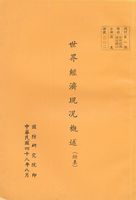 世界經濟現況概述（附表）
國防研究院印
中華民國四十八年八月